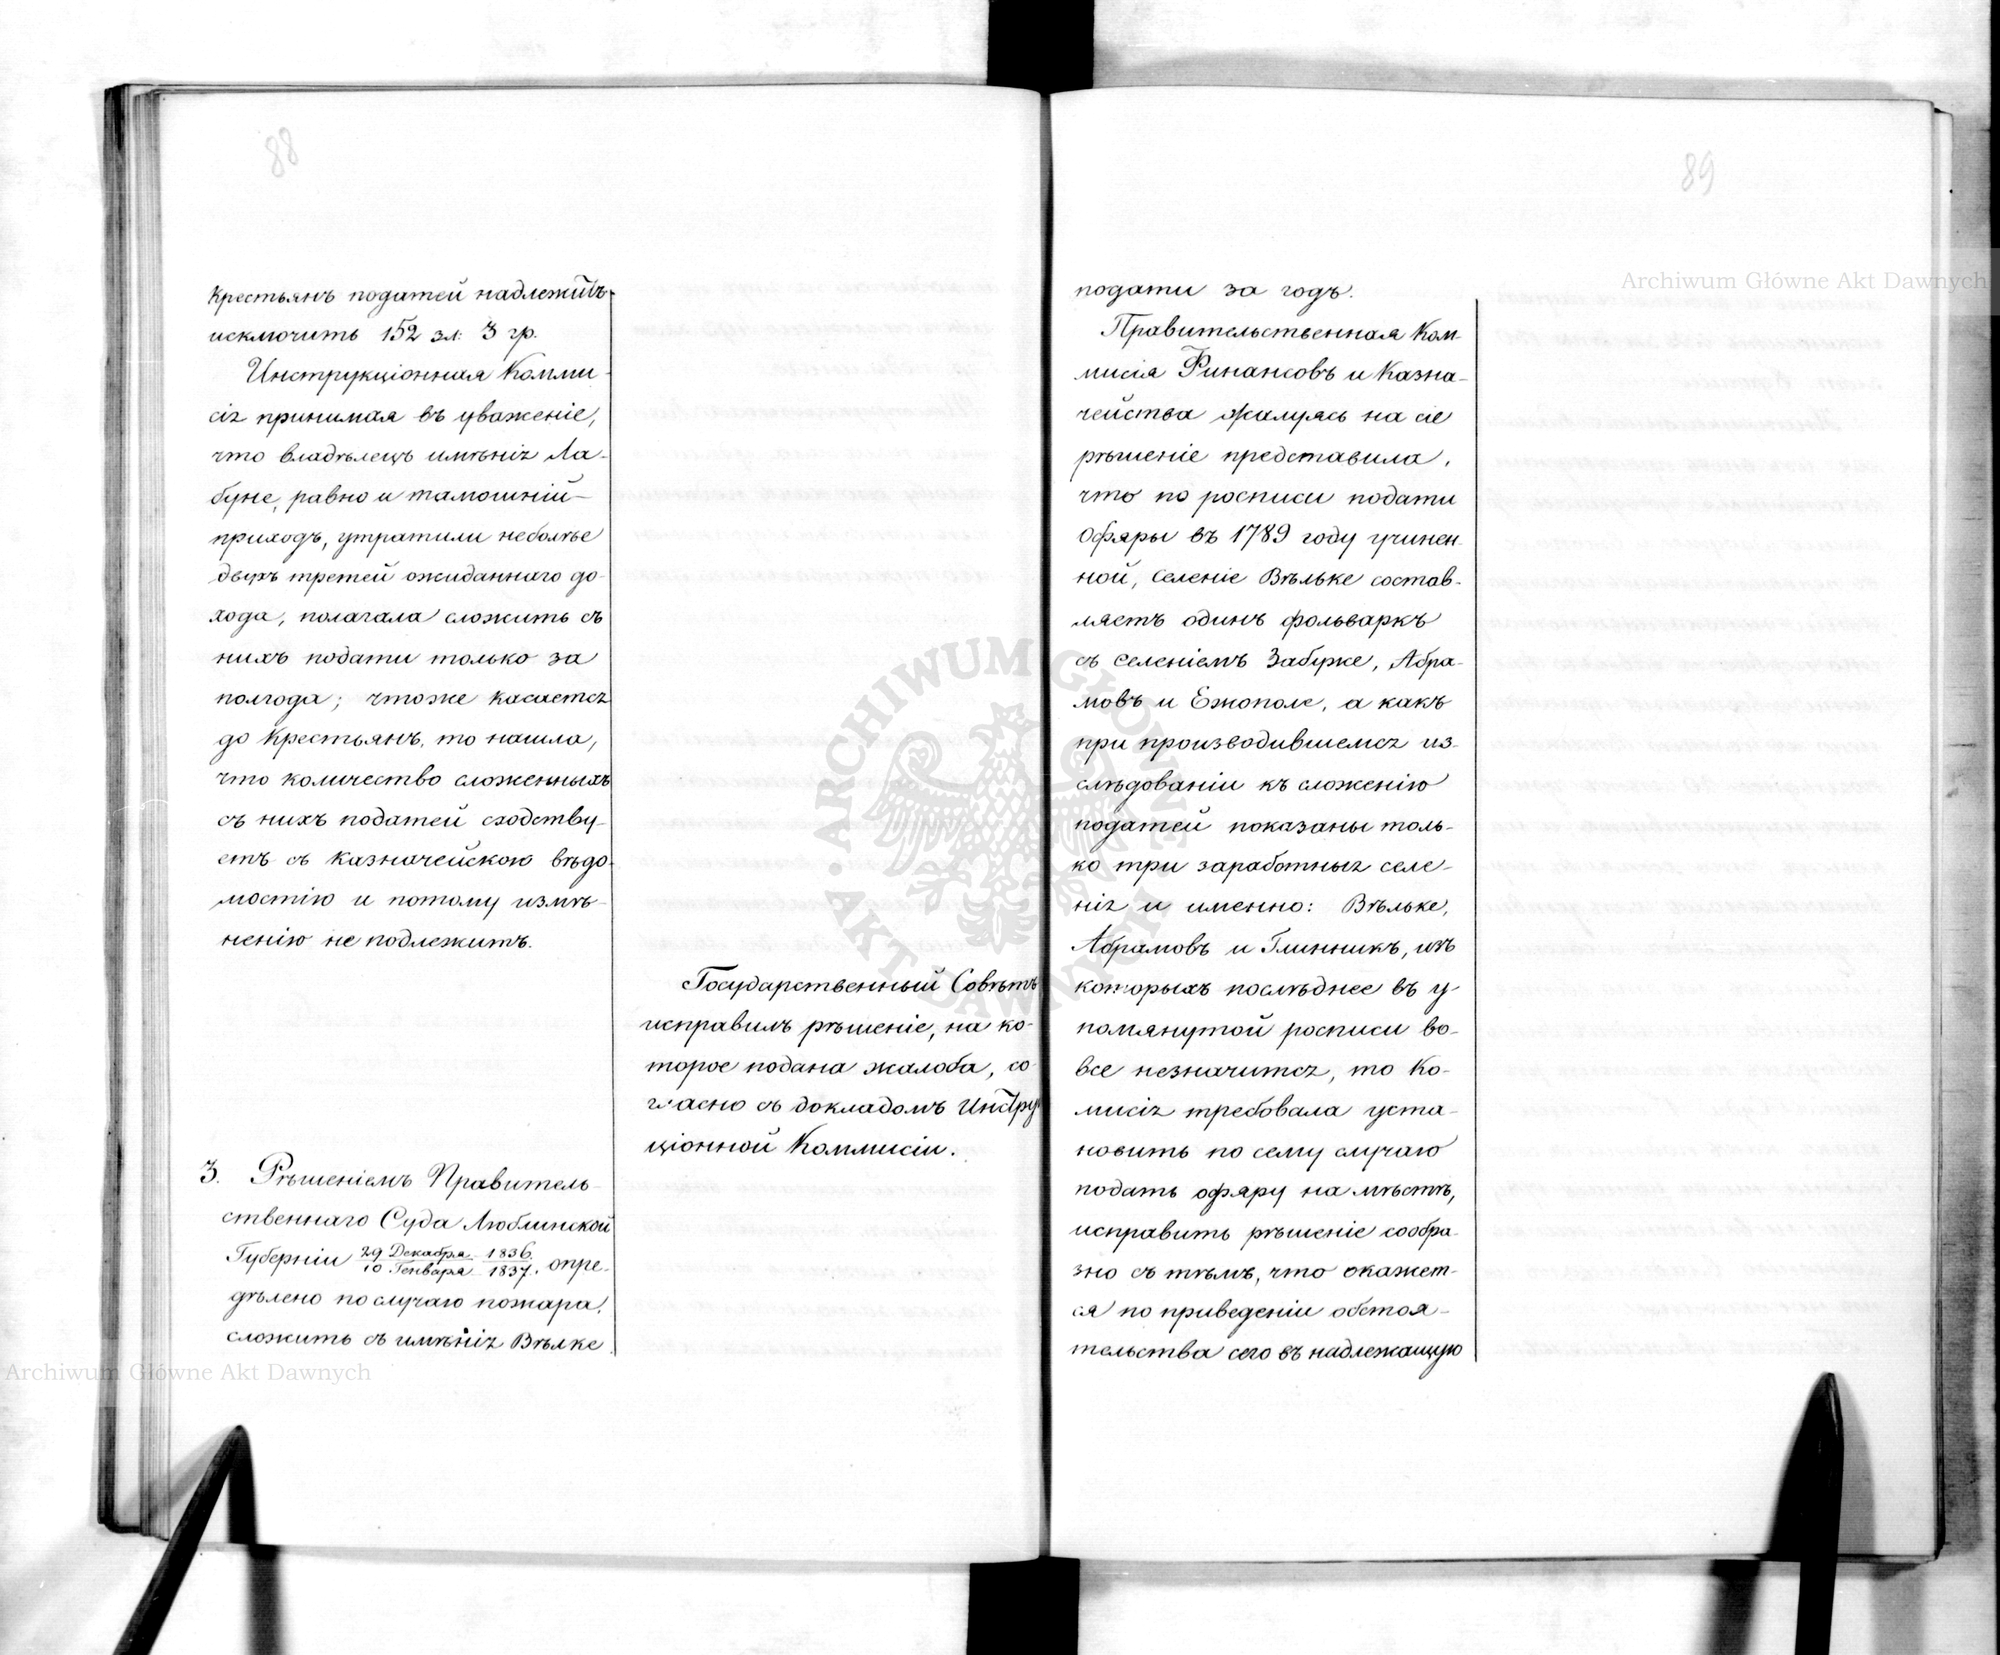 88
крестьянъ податей надлежитъ
исключить 152 зл: 3 гр.
Инструкціонная Комми-
сія принимая въ уваженіе,
что владѣлецъ имѣнія Ла-
буне, равно и тамошній
приходъ, утратили неболѣе
двухъ третей ожиданнаго до-
хода, полагала сложить съ
нихъ подати только за
полгода; чтоже касается
до крестьянъ, то нашла,
что количество сложенныхъ
съ нихъ податей сходству-
етъ съ казначейскою вѣдо-
мостію и потому измѣ-
ненію не подлежитъ.
Государственный Совѣтъ
исправилъ рѣшеніе, на ко-
торое подана жалоба, со
гласно съ докладомъ Инстру
ціонной Коммисіи.
3. Рѣшеніемъ Правитель-
ственнаго Суда Люблинской
Губерніи 29 Декабря 1836 / 10 Генваря 1837. опре-
дѣлено по случаю пожара,
сложить съ имѣнія Вѣлке
89
подати за годъ.
Правительственная Ком-
мисія Финансовъ и Казна-
чейства жалуясь на сіе
рѣшеніе представила,
что по росписи подати
офяры въ 1789 году учинен-
ной, селеніе Вѣльке состав-
ляетъ одинъ фольваркъ
съ селеніемъ Забуже, Абра-
мовъ и Ежополе, а какъ
при производившемся из-
слѣдованіи къ сложенію
податей показаны толь-
ко три заработныя селе-
нія и именно: Вѣльке,
Абрамовъ и Глинникъ, изъ
которыхъ послѣднее въ у
помянутой росписи во-
все незначится, то Ко-
мисія требовала уста-
новить по сему случаю
подать офяру на мѣстѣ,
исправить рѣшеніе сообра-
зно съ тѣмъ, что окажет-
ся по приведеніи обстоя-
тельства сего въ надлежащую
Archiwum Główne Akt Dawnych
Archiwum Główne Akt Dawnych
ARCHIWUM GŁÓWNE AKT DAWNYCH